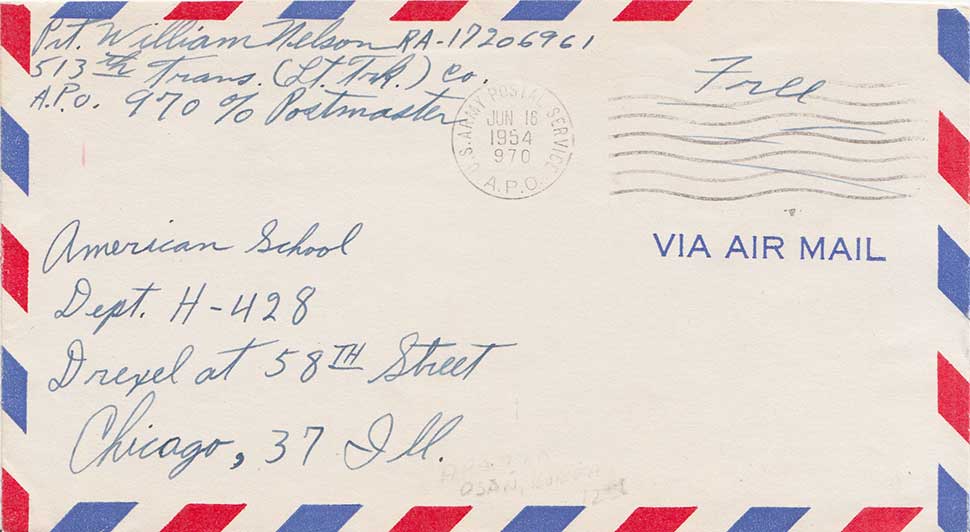 Pvt. William Nelson RA-17206961
513th Trans. (Lt. Trk.) Co.
A.P.O. 970 % Postmaster
Free
U.S. ARMY POSTAL SERVICE
JUN 16
1954
970
A.P.O.
VIA AIR MAIL
American School
Dept. H-428
Drexel at 58TH Street
Chicago, 37 Ill.
OSAN, KOREA